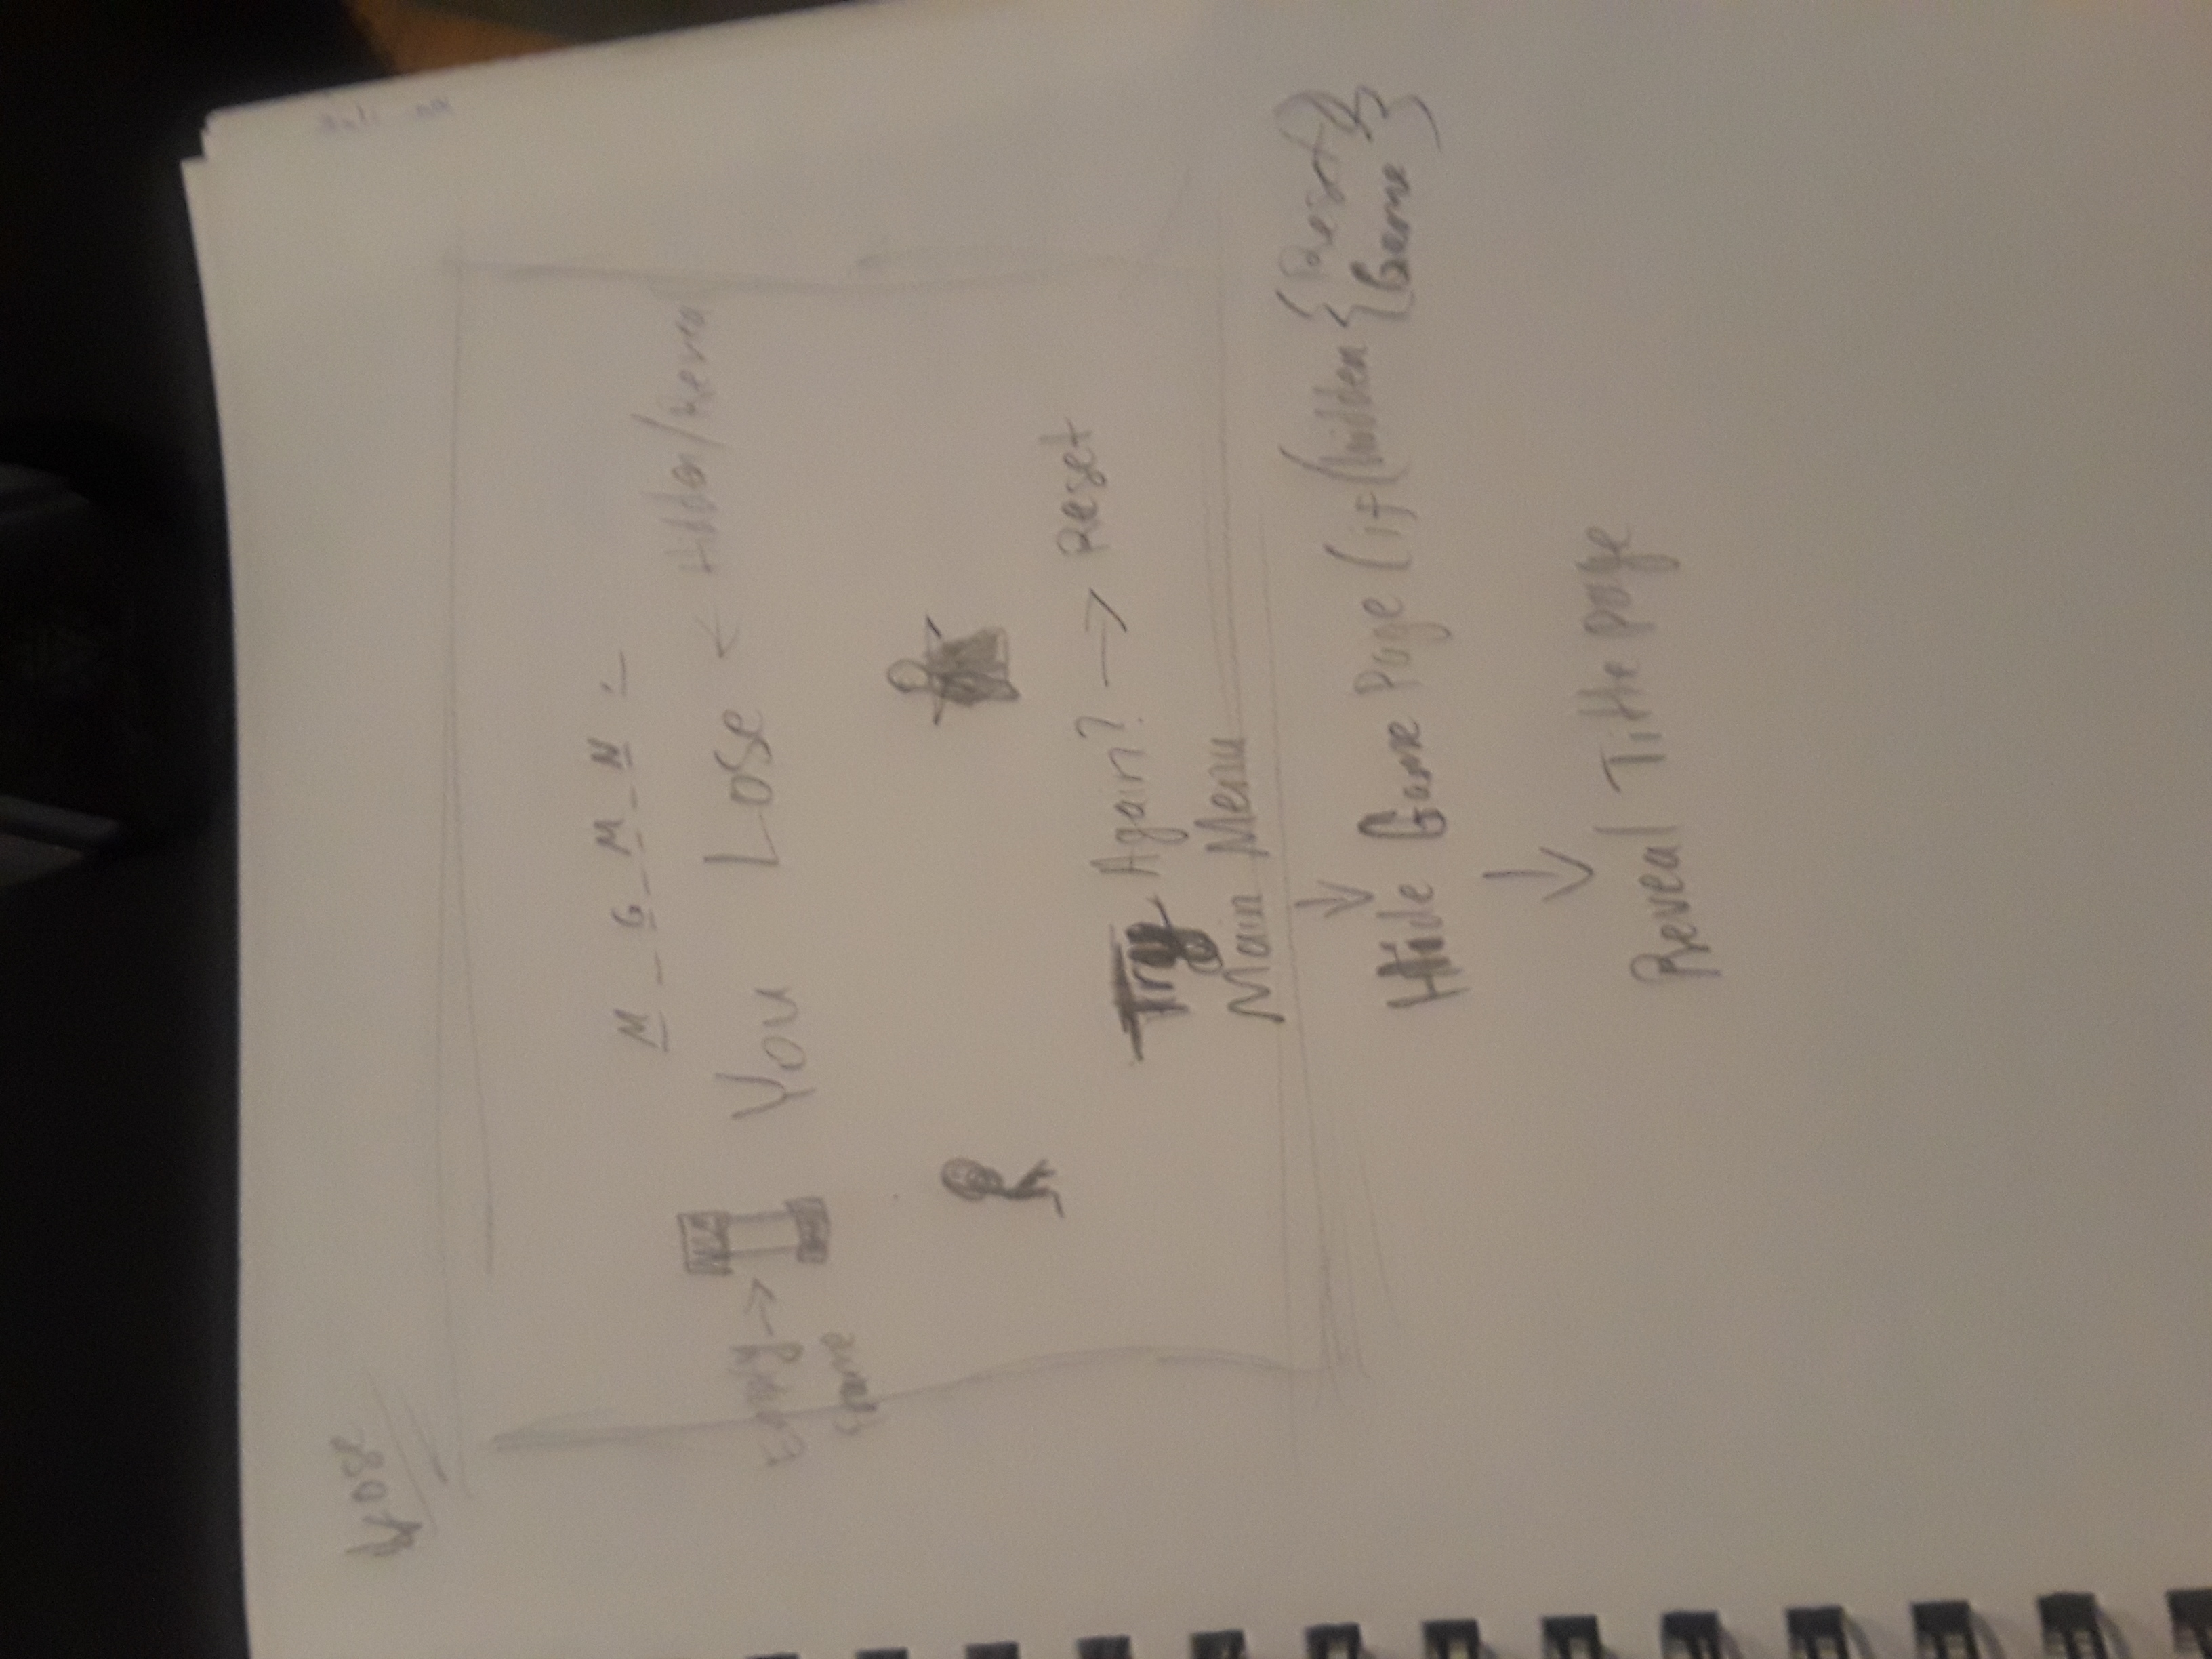 Lose
M _ G _ M _ N _
You Lose ← Hidden/
Empty →
frame
Try Again? → Reset
Main Menu
↓
Hide Game Page (if (hidden { (Reset
Game) }
↓
Reveal Title page